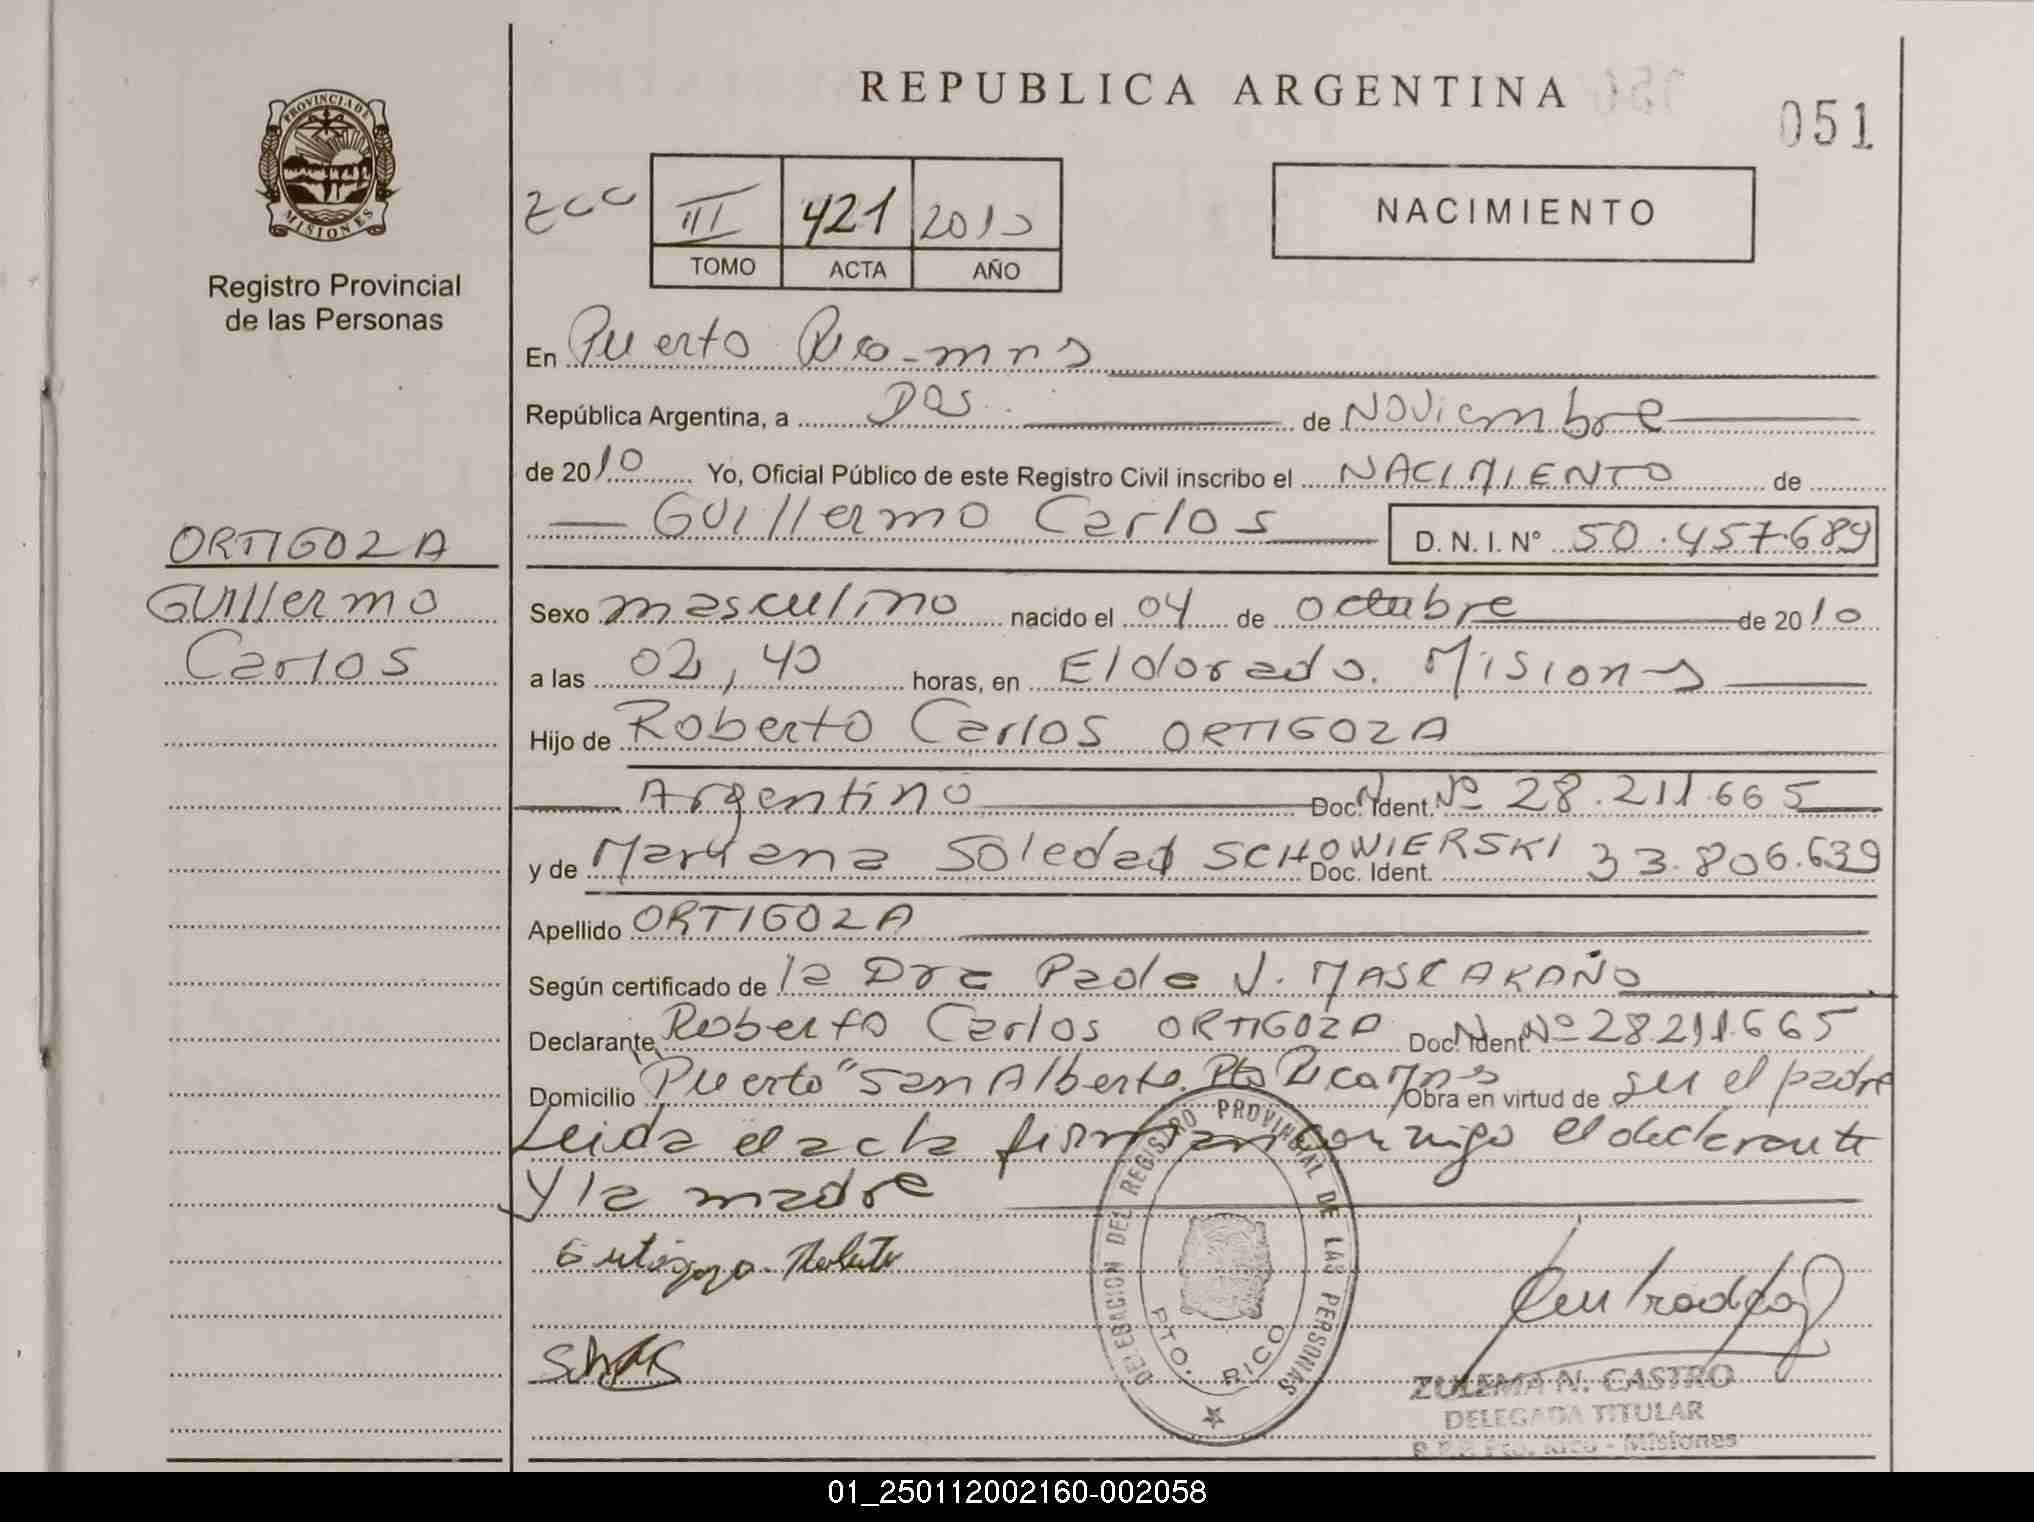 REPUBLICA ARGENTINA
051
PROVINCIA DE MISIONES
Registro Provincial
de las Personas
III 421 2010
TOMO ACTA AÑO
NACIMIENTO
En Puerto Rico-mns
República Argentina, a Dos de Noviembre
de 2010 Yo, Oficial Público de este Registro Civil inscribo el NACIMIENTO de
Guillermo Carlos D. N. I. N° 50.457.689
ORTIGOZA
Guillermo
Carlos
Sexo masculino nacido el 04 de octubre de 2010
a las 02,40 horas, en Eldorado. Misiones
Hijo de Roberto Carlos ORTIGOZA
Argentino Doc. Ident. Nº 28.211.665
y de Mariana Soledad SCHOWIERSKI Doc. Ident. 33.806.639
Apellido ORTIGOZA
Según certificado de la Dra Paola V. MASCARAÑO
Declarante Roberto Carlos ORTIGOZA Doc. Ident. Nº 28.211.665
Domicilio Puerto "San Alberto. Pto Rico Mns Obra en virtud de ser el padre
Leida el acta firman conmigo el declarante
y la madre
Ortigoza Roberto
DELEGACION DEL REGISTRO PROVINCIAL DE LAS PERSONAS
PTO. RICO
ZULEMA N. CASTRO
DELEGADA TITULAR
R.P.P. Pto. Rico - Misiones
01_250112002160-002058